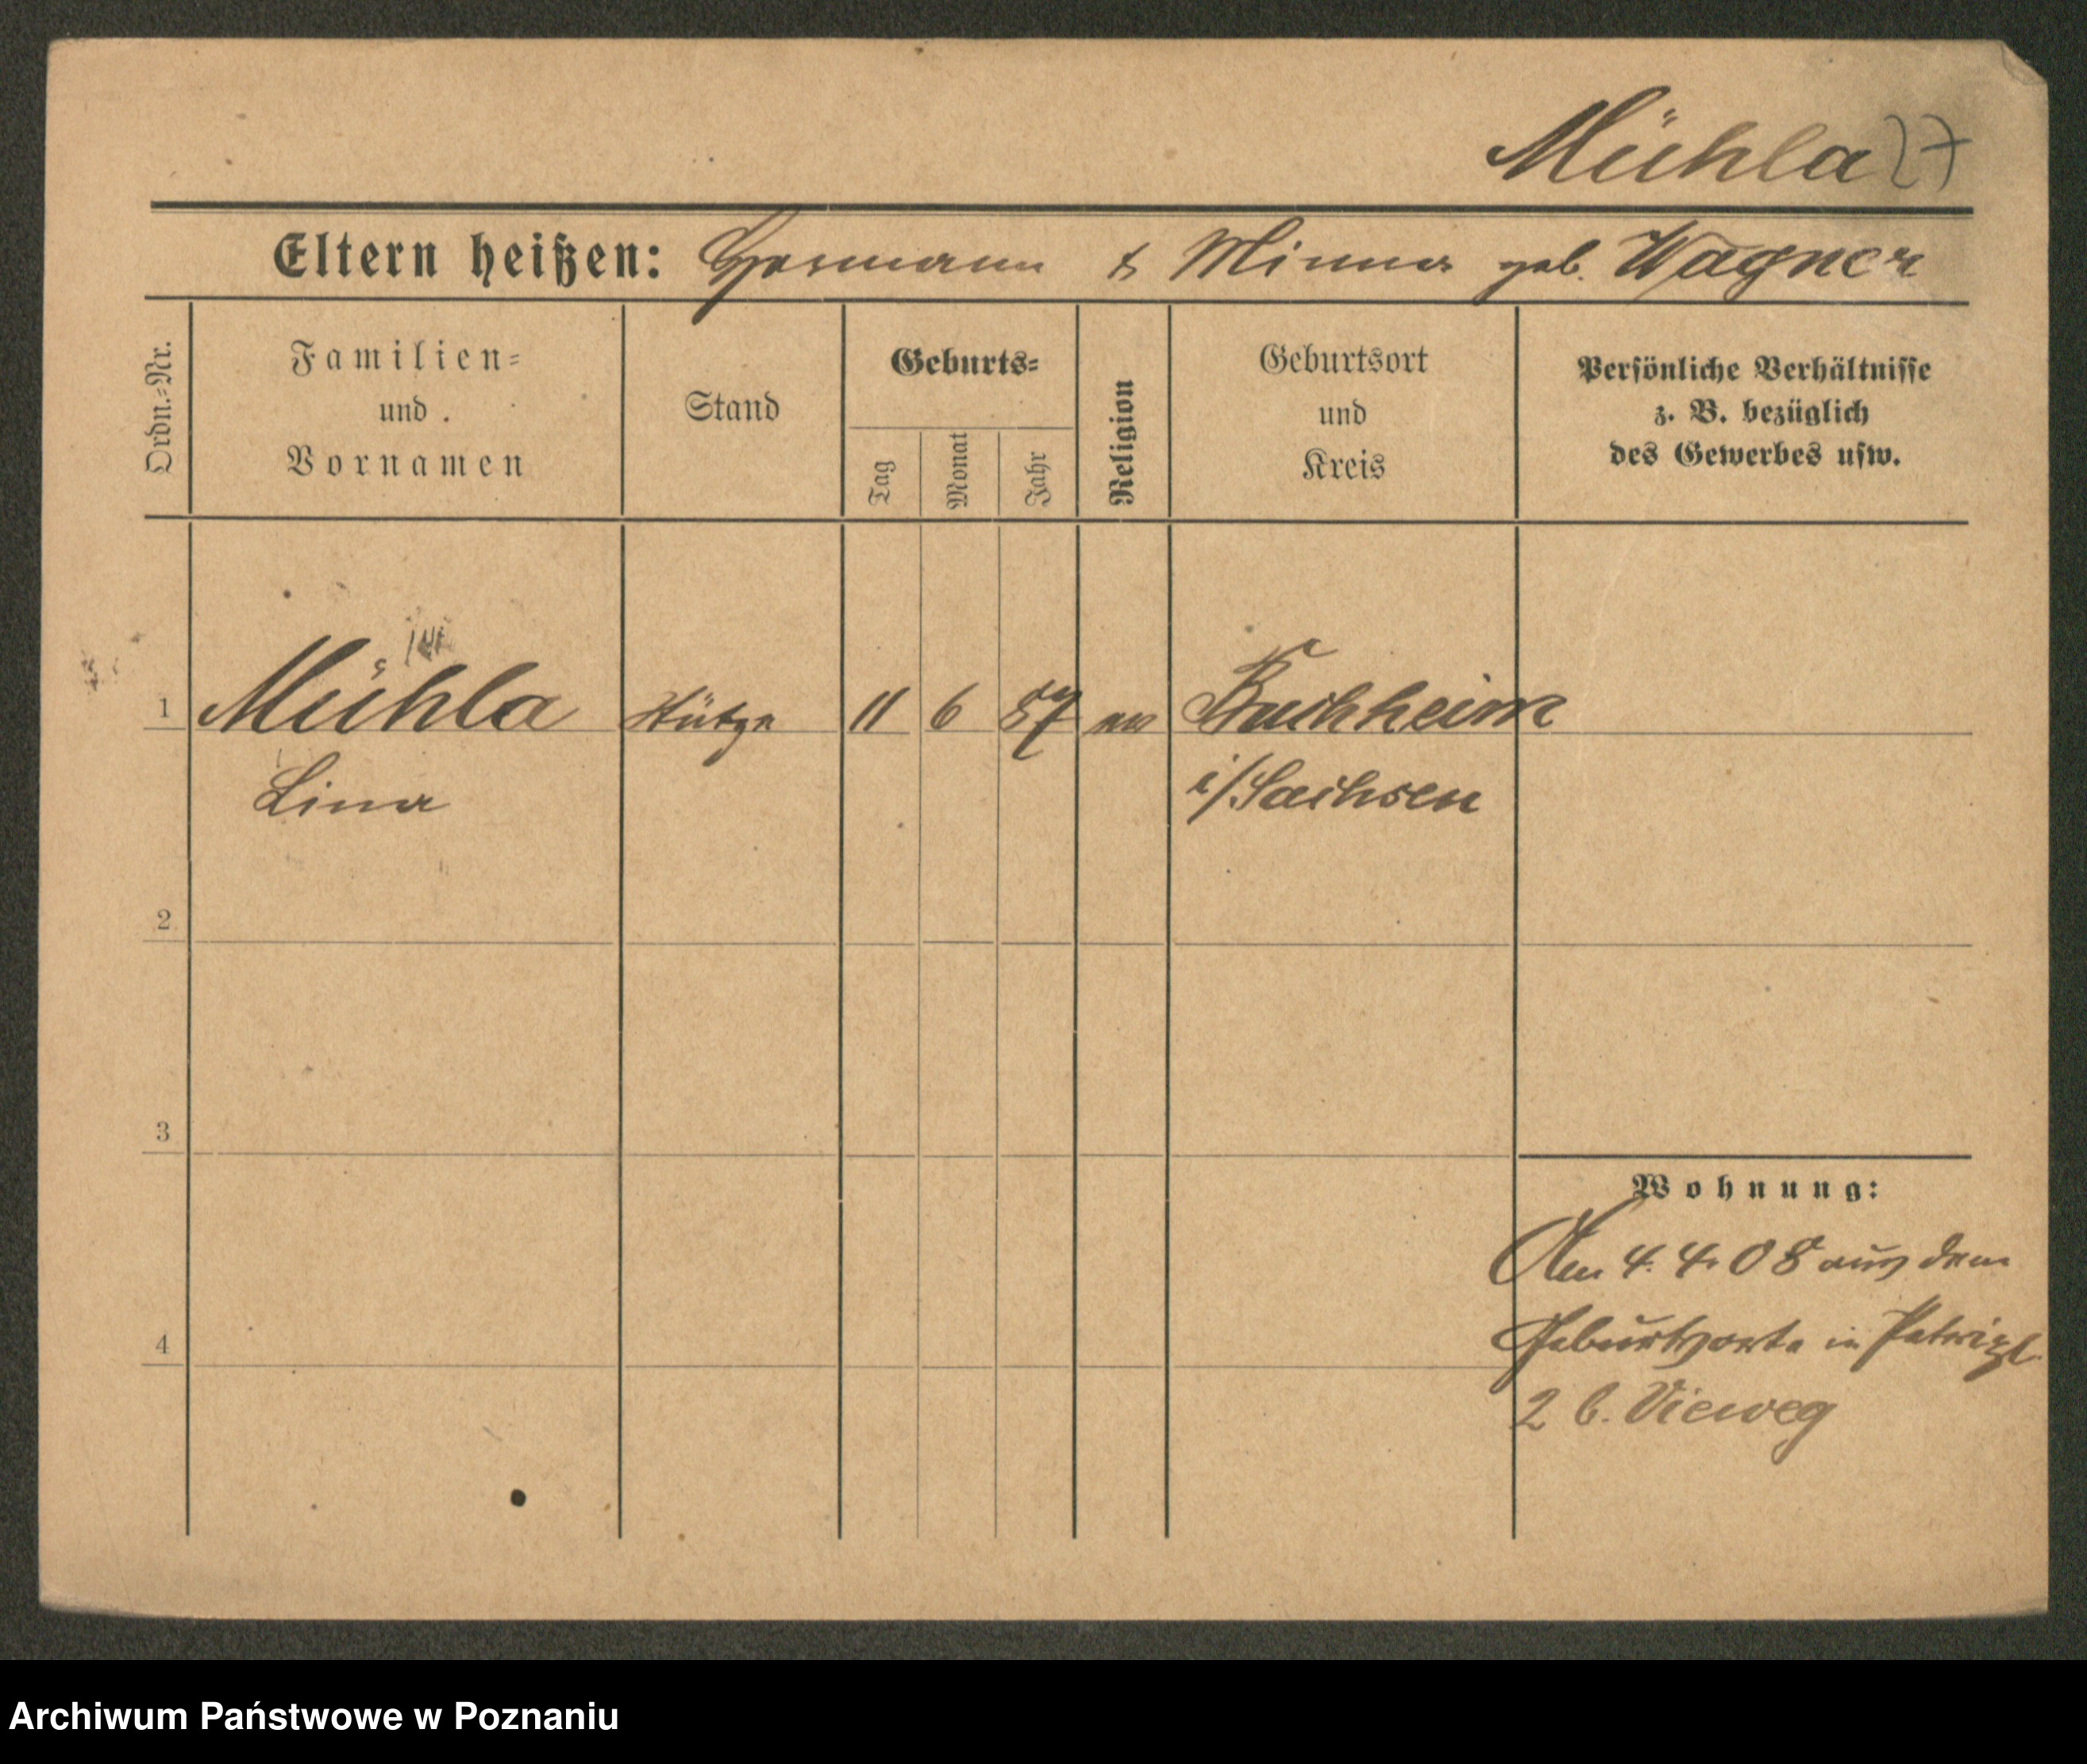 Mühla 27
Eltern heißen: Hermann & Minna geb. Wagner
Ordn.=Nr.
Familien=
und
Vornamen
Stand
Geburts=
Tag
Monat
Jahr
Religion
Geburtsort
und
Kreis
Persönliche Verhältnisse
z. B. bezüglich
des Gewerbes usw.
1 Mühla Stütze 11 6 87 ev Buchheim
Lina i/Sachsen
2
3
4
Wohnung:
Am 4. 4. 08 aus dem
Geburtsorte in
2 b. Vieweg
Archiwum Państwowe w Poznaniu